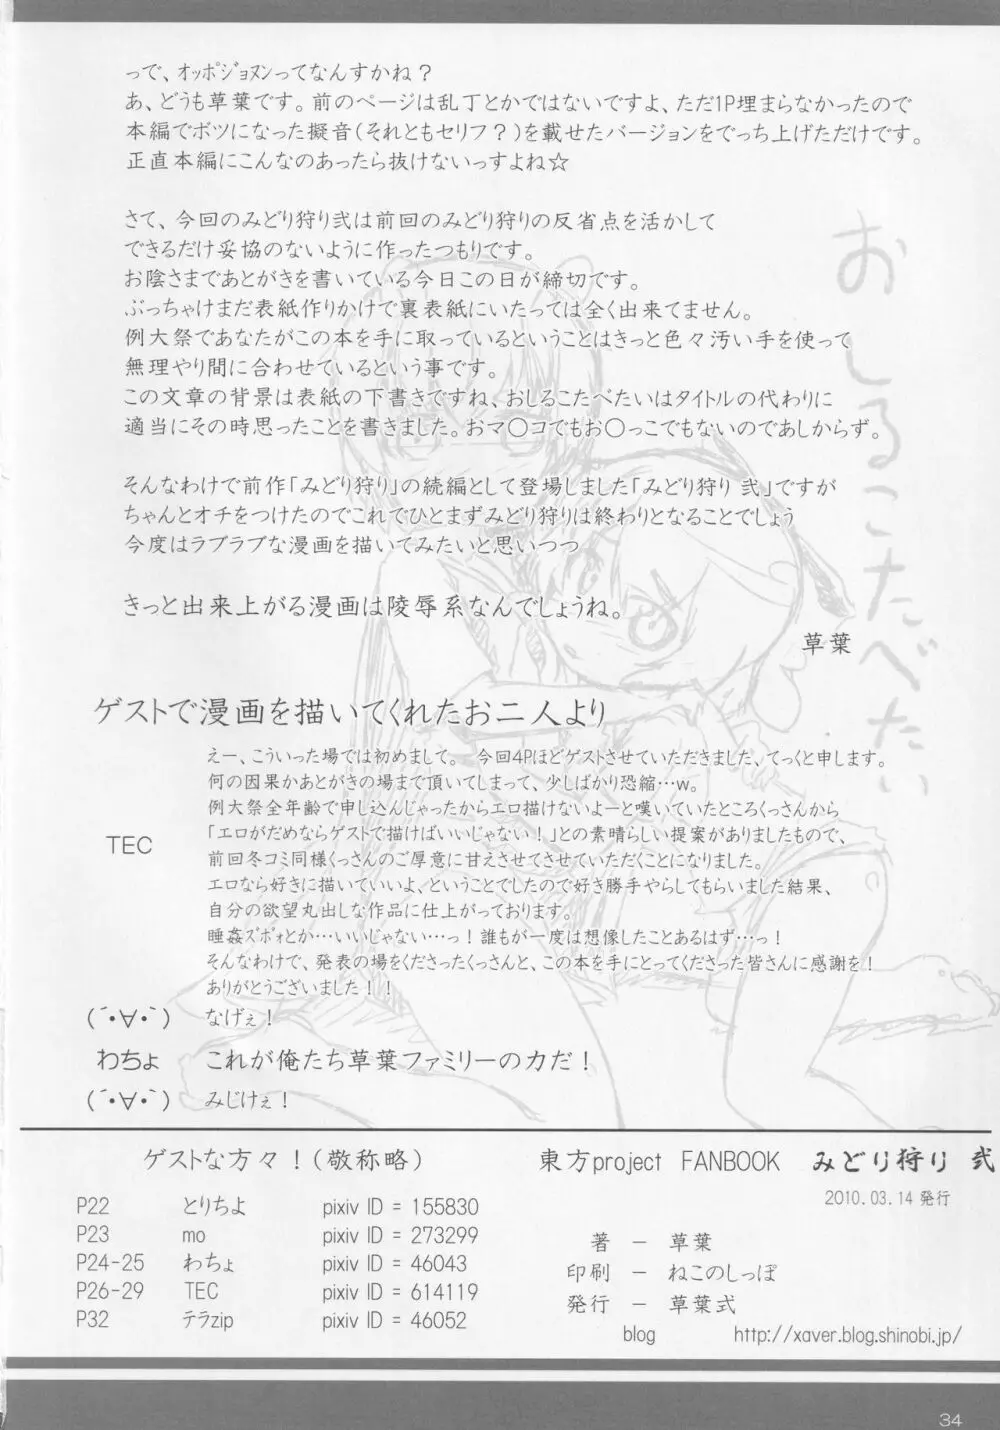 って、オッポジョヌンってなんすかね？
あ、どうも草葉です。前のページは乱丁とかではないですよ、ただ1P埋まらなかったので
本編でボツになった擬音(それともセリフ？)を載せたバージョンをでっち上げただけです。
正直本編にこんなのあったら抜けないっすよね☆
さて、今回のみどり狩り弐は前回のみどり狩りの反省点を活かして
できるだけ妥協のないように作ったつもりです。
お陰さまであとがきを書いている今日この日が締切です。
ぶっちゃけまだ表紙作りかけで裏表紙にいたっては全く出来てません。
例大祭であなたがこの本を手に取っているということはきっと色々汚い手を使って
無理やり間に合わせているという事です。
この文章の背景は表紙の下書きですね、おしるこたべたいはタイトルの代わりに
適当にその時思ったことを書きました。おマ〇コでもお〇っこでもないのであしからず。
そんなわけで前作「みどり狩り」の続編として登場しました「みどり狩り 弐」ですが
ちゃんとオチをつけたのでこれでひとまずみどり狩りは終わりとなることでしょう
今度はラブラブな漫画を描いてみたいと思いつつ
きっと出来上がる漫画は陵辱系なんでしょうね。
草葉
おしるこたべたい
ゲストで漫画を描いてくれたお二人より
TEC
えー、こういった場では初めまして。 今回4Pほどゲストさせていただきました、てっくと申します。
何の因果かあとがきの場まで頂いてしまって、少しばかり恐縮…w。
例大祭全年齢で申し込んじゃったからエロ描けないよーと嘆いていたところくっさんから
「エロがだめならゲストで描けばいいじゃない！」との素晴らしい提案がありましたもので、
前回冬コミ同様くっさんのご厚意に甘えさせてさせていただくことになりました。
エロなら好きに描いていいよ、ということでしたので好き勝手やらしてもらいました結果、
自分の欲望丸出しな作品に仕上がっております。
睡姦ズボォとか…いいじゃない…っ！誰もが一度は想像したことあるはず…っ！
そんなわけで、発表の場をくださったくっさんと、この本を手にとってくださった皆さんに感謝を！
ありがとうございました！！
(´･∀･`) なげぇ！
わちょ これが俺たち草葉ファミリーの力だ！
(´･∀･`) みじけぇ！
ゲストな方々！(敬称略)
P22 とりちよ pixiv ID = 155830
P23 mo pixiv ID = 273299
P24-25 わちょ pixiv ID = 46043
P26-29 TEC pixiv ID = 614119
P32 テラzip pixiv ID = 46052
東方project FANBOOK みどり狩り 弐
2010.03.14 発行
著 － 草葉
印刷 － ねこのしっぽ
発行 － 草葉式
blog http://xaver.blog.shinobi.jp/
34